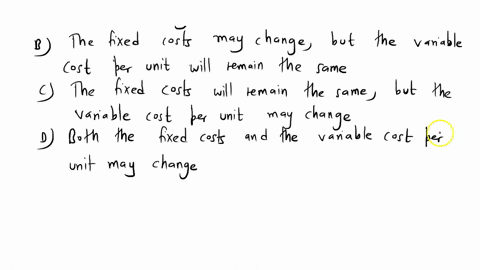 B) The fixed costs may change, but the variable
cost per unit will remain the same
C) The fixed costs will remain the same, but the
variable cost per unit may change
D) Both the fixed costs and the variable cost per
unit may change